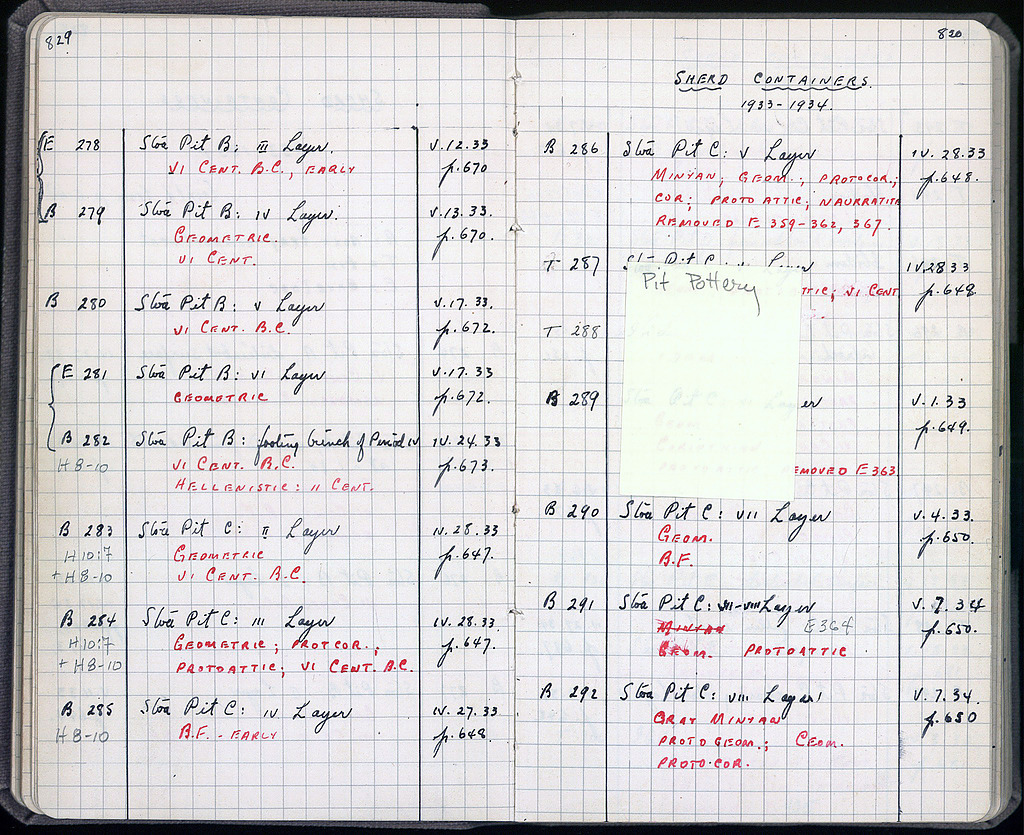 829
E 278 Stoa Pit B: III Layer. V.12.33
VI CENT. B.C., EARLY p.670
B 279 Stoa Pit B: IV Layer. V.13.33.
GEOMETRIC. p.670.
VI CENT.
B 280 Stoa Pit B: V Layer V.17.33.
VI CENT. B.C. p.672.
E 281 Stoa Pit B: VI Layer V.17.33
GEOMETRIC p.672.
B 282 Stoa Pit B: footing trench of Period IV IV.24.33
H 8-10 VI CENT. B.C. p.673.
HELLENISTIC: II CENT.
B 283 Stoa Pit C: II Layer IV.28.33
H 10:7 GEOMETRIC p.647.
+ H 8-10 VI CENT. B.C.
B 284 Stoa Pit C: III Layer IV.28.33
H 10:7 GEOMETRIC; PROTCOR.; p.647.
+ H 8-10 PROTOATTIC; VI CENT. B.C.
B 285 Stoa Pit C: IV Layer IV.27.33
H 8-10 B.F. - EARLY p.648.
820
SHERD CONTAINERS.
1933-1934.
B 286 Stoa Pit C: V Layer IV.28.33
MINYAN; GEOM.; PROTOCOR.; p.648.
COR; PROTOATTIC; NAUKRATITE
REMOVED E 359-362, 367.
T 287 Layer IV.28 33
Pit Pottery
TTIC; VI CENT p.649.
T 288
B 289 er V.1.33
p.649.
EMOVED E363
B 290 Stoa Pit C: VII Layer V.4.33.
GEOM. p.650.
B.F.
B 291 Stoa Pit C: VII-VIII Layer V.7.34
MINYAN E364 p.650.
GEOM. PROTOATTIC
B 292 Stoa Pit C: VIII Layer V.7.34.
GRAY MINYAN p.650
PROTOGEOM.; GEOM.
PROTO-COR.